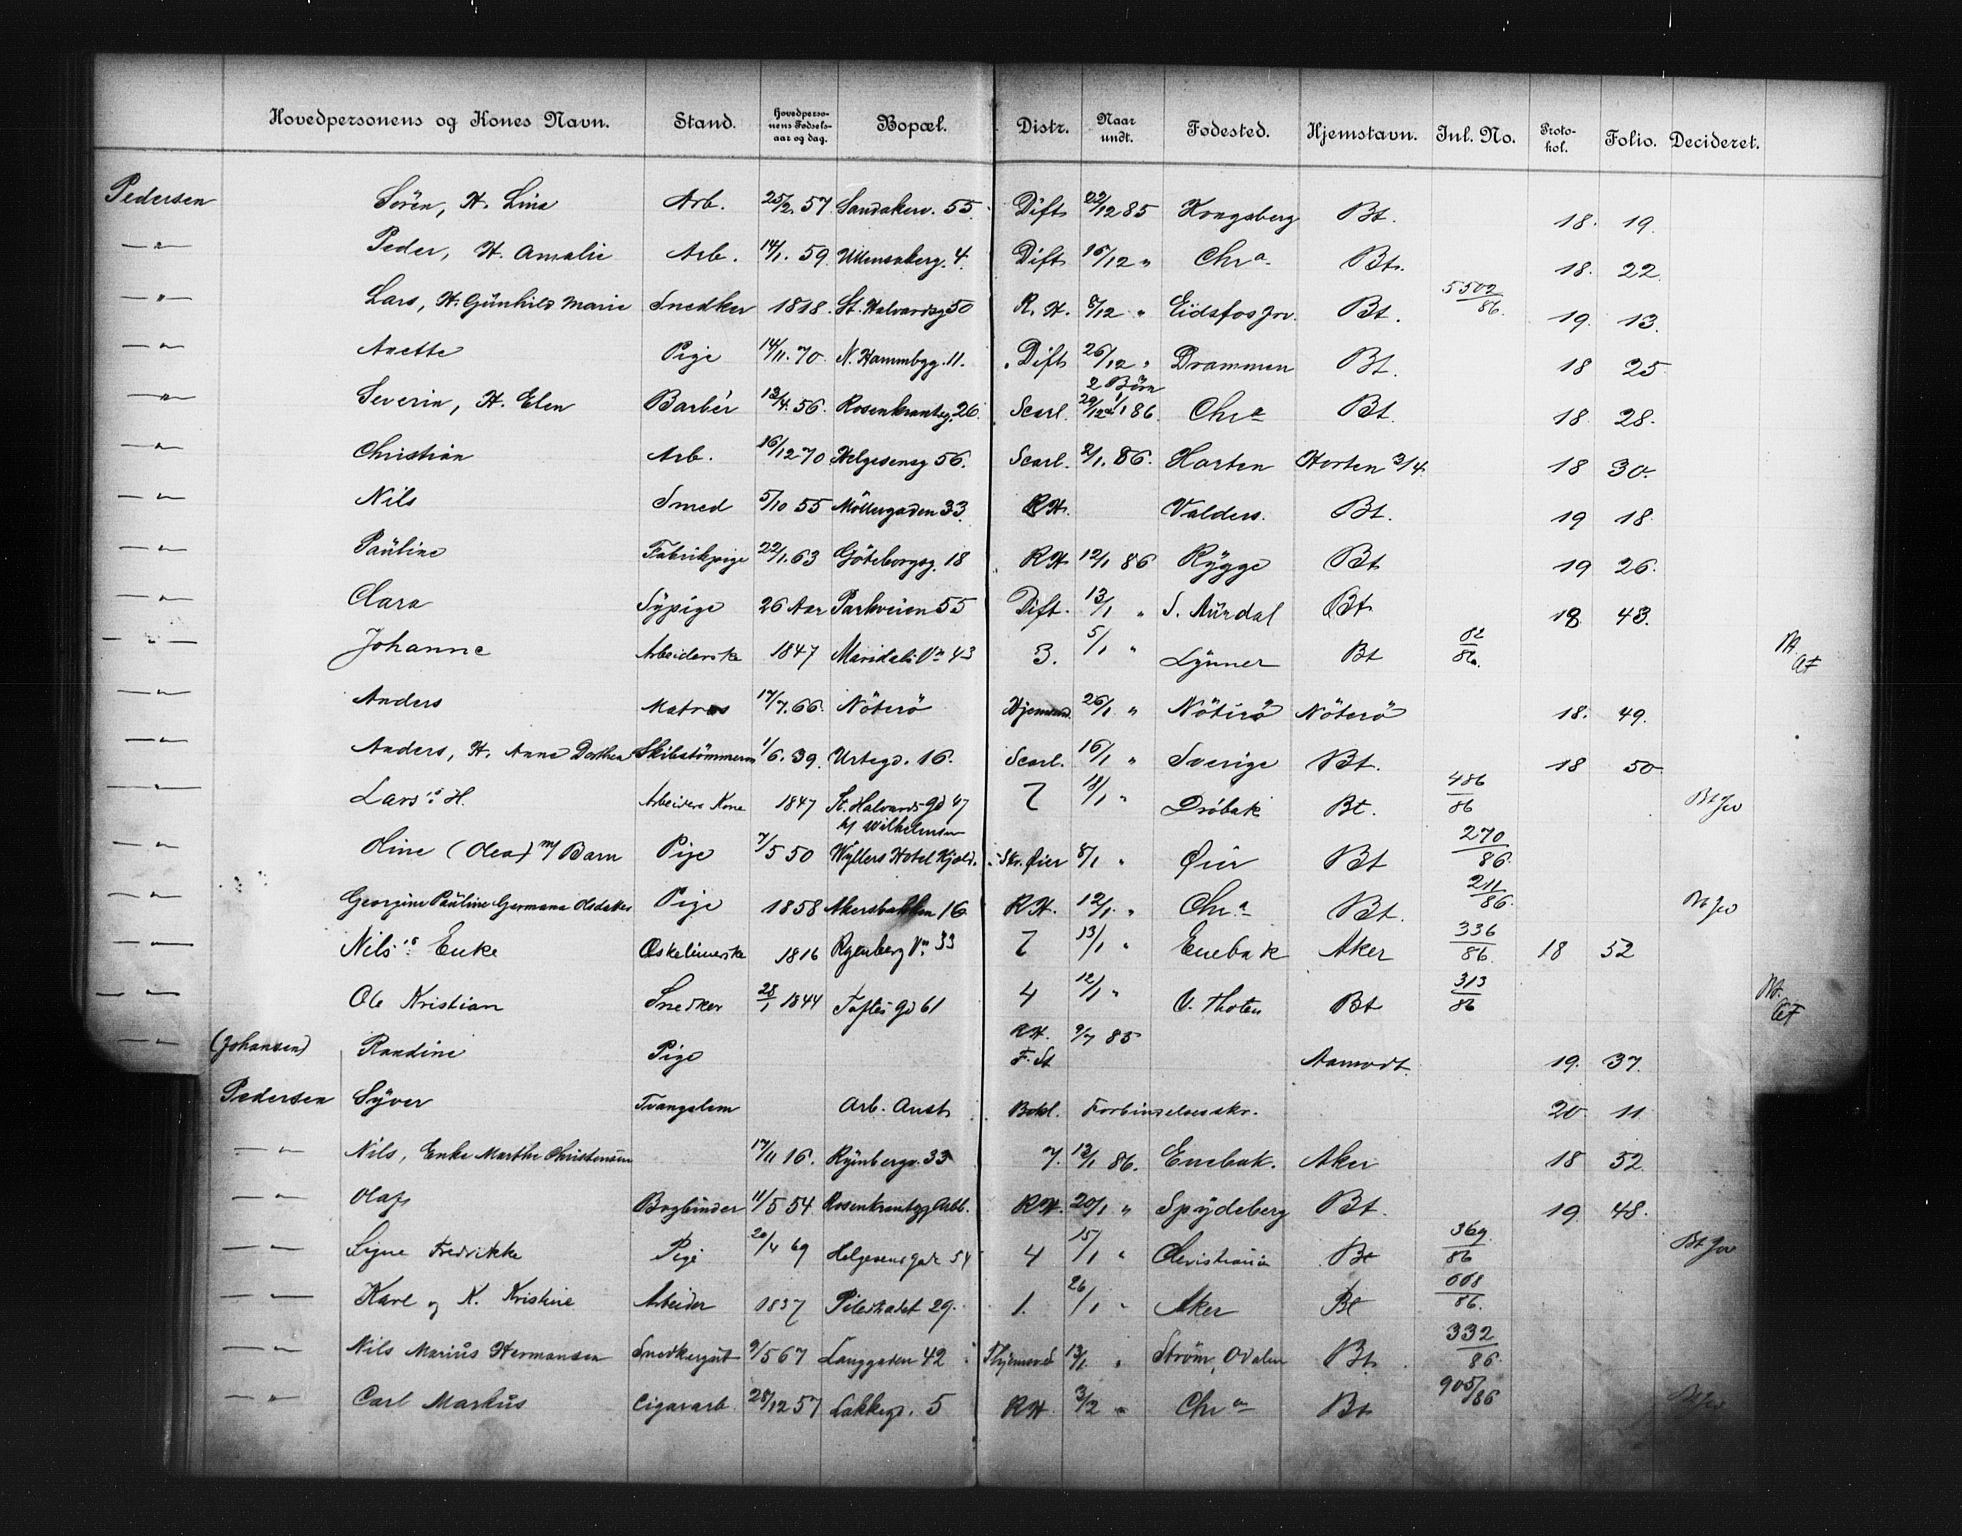 Hovedpersonens og Kones Navn. Stand. Hovedpersonens Fødselsaar og dag. Bopæl. Distr. Naar undt. Fødested. Hjemstavn. Inl. No. Protokol. Folio. Decideret.
Pedersen Sören, H. Lina Arb. 25/2. 57. Sandakerv. 55. Dift 22/12 85 Kongsberg Bt. 18. 19.
—"— Peder, H. Amalie Arb. 14/1. 59. Ullensakerg. 4. Dift 16/12 " Chra Bt. 18. 22.
—"— Lars, H. Günhild Marie Snedker 1818. St. Halvardsg 50 R.H. 8/12 " Eidsfos Jrv. Bt. 5502/86. 19. 13.
—"— Anette Pige 14/11. 70. N. Hammbgg. 11. Dift 26/12 " Drammen Bt. 18 25
—"— Severin, H. Elen Barbér 13/4. 56. Rosenkrantzg. 26. Scarl. 2 Börn 29/12 1/1 86. Chra Bt. 18 28.
—"— Christian Arb. 16/12 70 Helgesensg 56. Scarl. 2/1. 86. Horten Horten 3/4. 18 30.
—"— Nils Smed 5/10 55 Möllergaden 33. RH. Valders. Bt. 19 18.
—"— Paüline Fabrikpige 22/1. 63 Göteborgsg. 18 RH 12/1 86 Rÿgge Bt 19 26.
—"— Clara Sÿpige 26 Aar Parkveien 55 Dift. 13/1 " S. Aürdal Bt 18 43.
—"— Johanne Arbeiderske 1847 Maridals Vn 43 3. 5/1 " Lÿnner Bt 82/86.
—"— Anders Matros 17/7. 66. Nöterö Hjemsend. 26/1 " Nöterö Nöterö 18. 49.
—"— Anders, H. Anne Dorthea Skibstömmerm 1/6. 39. Urtegd. 16. Scarl. 16/1 " Sverige Bt. 18 50
—"— Lars's H. Arbeiders Kone 1847 St. Halvards Gd 47 7 18/1 " Dröbak Bt. 486/86 Bt Jw
—"— Oline (Olea) m/ Barn Pige 7/5 50 h/ Wilhelmsen Wÿllers Hotel Kjöld. Skr. Øier 8/1 " Øier Bt 270/86.
—"— Georgine Paüline Germana Olsdatter Pige 1858 Akersbakken 16 RH. 12/1. " Chra Bt. 211/86. Bt Jw
—"— Nils's Enke Oskelimerske 1816 Ryenberg Vn. 33 7 13/1 " Enebak Aker 336/86. 18 52
—"— Ole Kristian Snedker 28/1 1844 Toftes Gd 61 4 12/1 " V. Thoten Bt 313/86
—"— (Johansen) Randine Pige RH. F. St 9/7 85 Aamodt. 19. 37.
Pedersen Sÿver Tvangslem Arb. Anst. Bokl. Forbindelsesskr. 20 11.
—"— Nils, Enke Marthe Christensen 17/11 16. Rÿenbergv. 33 7. 13/1 86. Enebak. Aker 18 52.
—"— Olaf Bogbinder 11/5 54. Rosenkrantzg Arbb. RH. 20/1 " Spÿdeberg Bt. 19 48.
—"— Signe Fredrikke Pige 20/4 69 Helgesens Gade 54 4 15/1 " Christiania Bt 369/86 Bt Jw
—"— Karl og K. Kristine Arbeider 1837 Pilestrædet 29. 1. 26/1 " Aker Bt 668/86.
—"— Nils Mariüs Hermansen Snedkergüt 9/5 67 Langgaden 42 Hjemsed 13/1 " Ström, Odalen Bt. 332/86.
—"— Carl Markus Cigararb. 28/12 57 Lakkegd. 5 RH. 3/2 " Chra Bt 905/86 Bt Jw